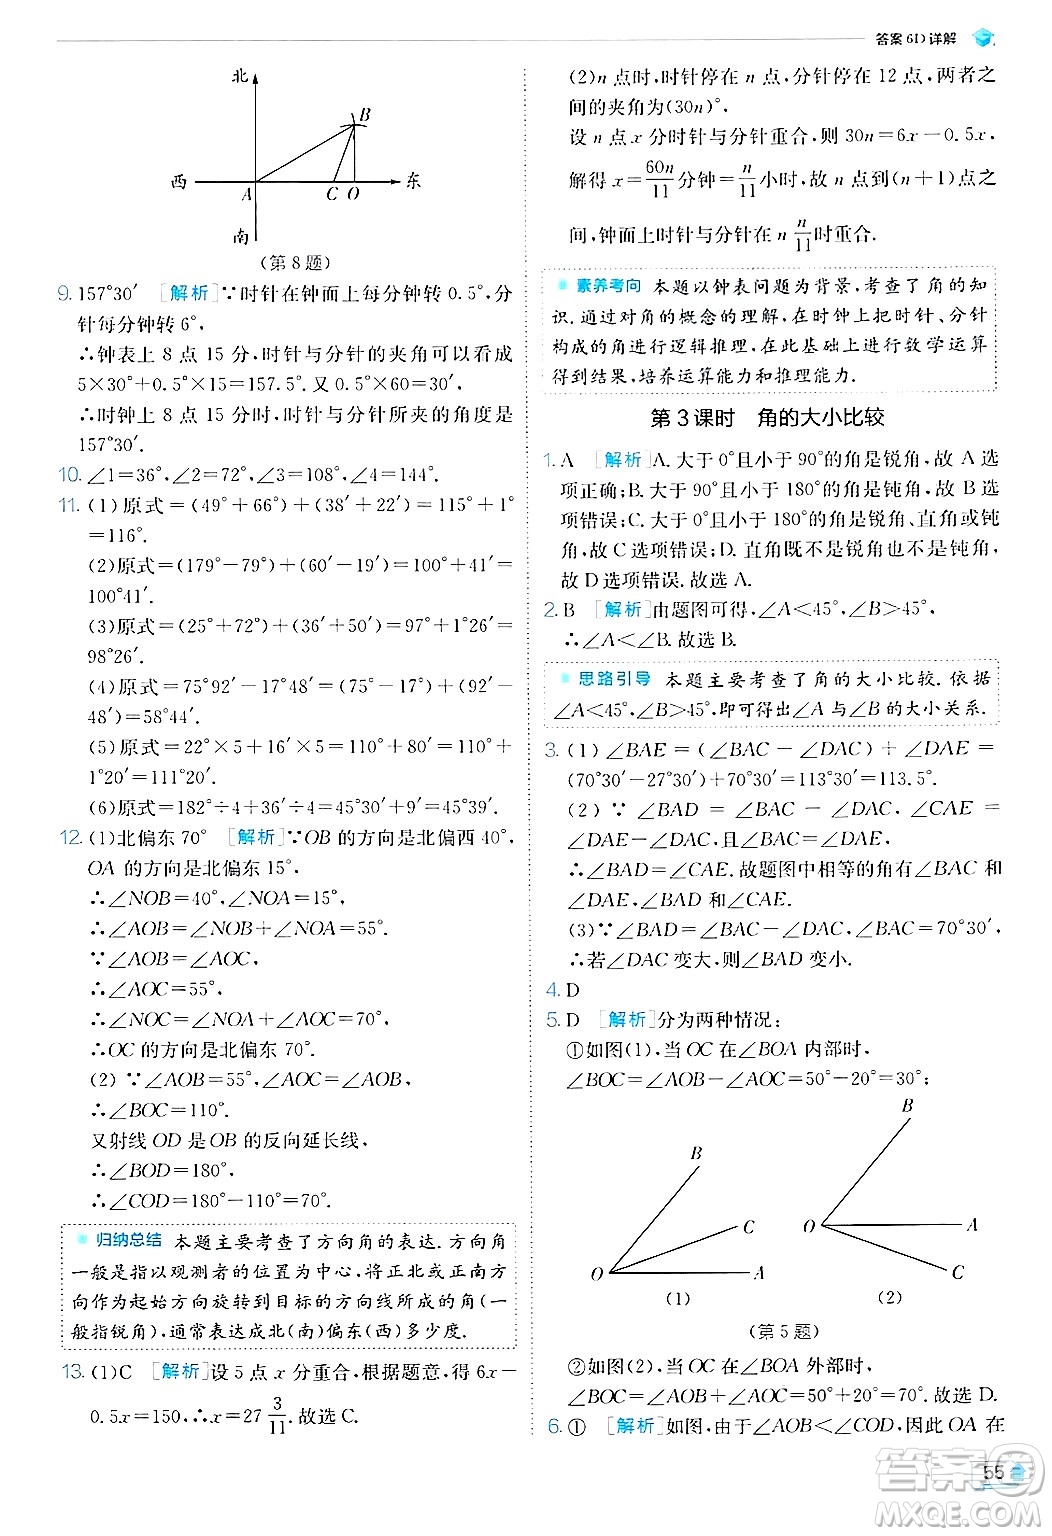 答案 6D 详解
北
B
西
A
C
O
东
南
(第 8 题)
9. 157°30′ [解析]∵时针在钟面上每分钟转 0.5°,分
针每分钟转 6°,
∴钟表上 8 点 15 分,时针与分针的夹角可以看成
5×30°+0.5°×15=157.5°. 又 0.5°×60=30′,
∴时钟上 8 点 15 分时,时针与分针所夹的角度是
157°30′.
10. ∠1=36°,∠2=72°,∠3=108°,∠4=144°.
11. (1)原式=(49°+66°)+(38′+22′)=115°+1°
=116°.
(2)原式=(179°-79°)+(60′-19′)=100°+41′=
100°41′.
(3)原式=(25°+72°)+(36′+50′)=97°+1°26′=
98°26′.
(4)原式=75°92′-17°48′=(75°-17°)+(92′-
48′)=58°44′.
(5)原式=22°×5+16′×5=110°+80′=110°+
1°20′=111°20′.
(6)原式=182°÷4+36′÷4=45°30′+9′=45°39′.
12. (1)北偏东 70° [解析]∵OB 的方向是北偏西 40°,
OA 的方向是北偏东 15°,
∴∠NOB=40°,∠NOA=15°,
∴∠AOB=∠NOB+∠NOA=55°.
∵∠AOB=∠AOC,
∴∠AOC=55°,
∴∠NOC=∠NOA+∠AOC=70°,
∴OC 的方向是北偏东 70°.
(2) ∵∠AOB=55°,∠AOC=∠AOB,
∴∠BOC=110°.
又射线 OD 是 OB 的反向延长线,
∴∠BOD=180°,
∴∠COD=180°-110°=70°.
归纳总结 本题主要考查了方向角的表达.方向角
一般是指以观测者的位置为中心,将正北或正南方
向作为起始方向旋转到目标的方向线所成的角(一
般指锐角),通常表达成北(南)偏东(西)多少度.
13. (1)C [解析]设 5 点 x 分重合,根据题意,得 6x-
0.5x=150,∴x=27 3/11. 故选 C.
(2)n 点时,时针停在 n 点,分针停在 12 点,两者之
间的夹角为(30n)°.
设 n 点 x 分时针与分针重合,则 30n=6x-0.5x,
解得 x=60n/11分钟=n/11小时,故 n 点到(n+1)点之
间,钟面上时针与分针在 n n/11时重合.
素养考向 本题以钟表问题为背景,考查了角的知
识.通过对角的概念的理解,在时钟上把时针、分针
构成的角进行逻辑推理,在此基础上进行数学运算
得到结果,培养运算能力和推理能力.
第 3 课时 角的大小比较
1. A [解析]A.大于 0°且小于 90°的角是锐角,故 A 选
项正确;B.大于 90°且小于 180°的角是钝角,故 B 选
项错误;C.大于 0°且小于 180°的角是锐角、直角或钝
角,故 C 选项错误;D.直角既不是锐角也不是钝角,
故 D 选项错误.故选 A.
2. B [解析]由题图可得,∠A<45°,∠B>45°,
∴∠A<∠B.故选 B.
思路引导 本题主要考查了角的大小比较.依据
∠A<45°,∠B>45°,即可得出∠A 与∠B 的大小关系.
3. (1)∠BAE=(∠BAC-∠DAC)+∠DAE=
(70°30′-27°30′)+70°30′=113°30′=113.5°.
(2) ∵∠BAD=∠BAC-∠DAC,∠CAE=
∠DAE-∠DAC,且∠BAC=∠DAE,
∴∠BAD=∠CAE.故题图中相等的角有∠BAC=
∠DAE,∠BAD=∠CAE.
(3)∵∠BAD+∠DAC=∠BAC=∠BAC=70°30′,
∴若∠DAC 变大,则∠BAD 变小.
4. D
5. D [解析]分为两种情况:
①如图(1),当 OC 在∠BOA 内部时,
∠BOC=∠BOA-∠AOC=50°-20°=30°;
B
C
O
A
(1)
B
O
A
C
(2)
(第 5 题)
②如图(2),当 OC 在∠BOA 外部时,
∠BOC=∠BOA+∠AOC=50°+20°=70°.故选 D.
6. ① [解析]如图,由于∠AOB<∠COD,因此 OA 在
55
答案圈
MXQE.COM